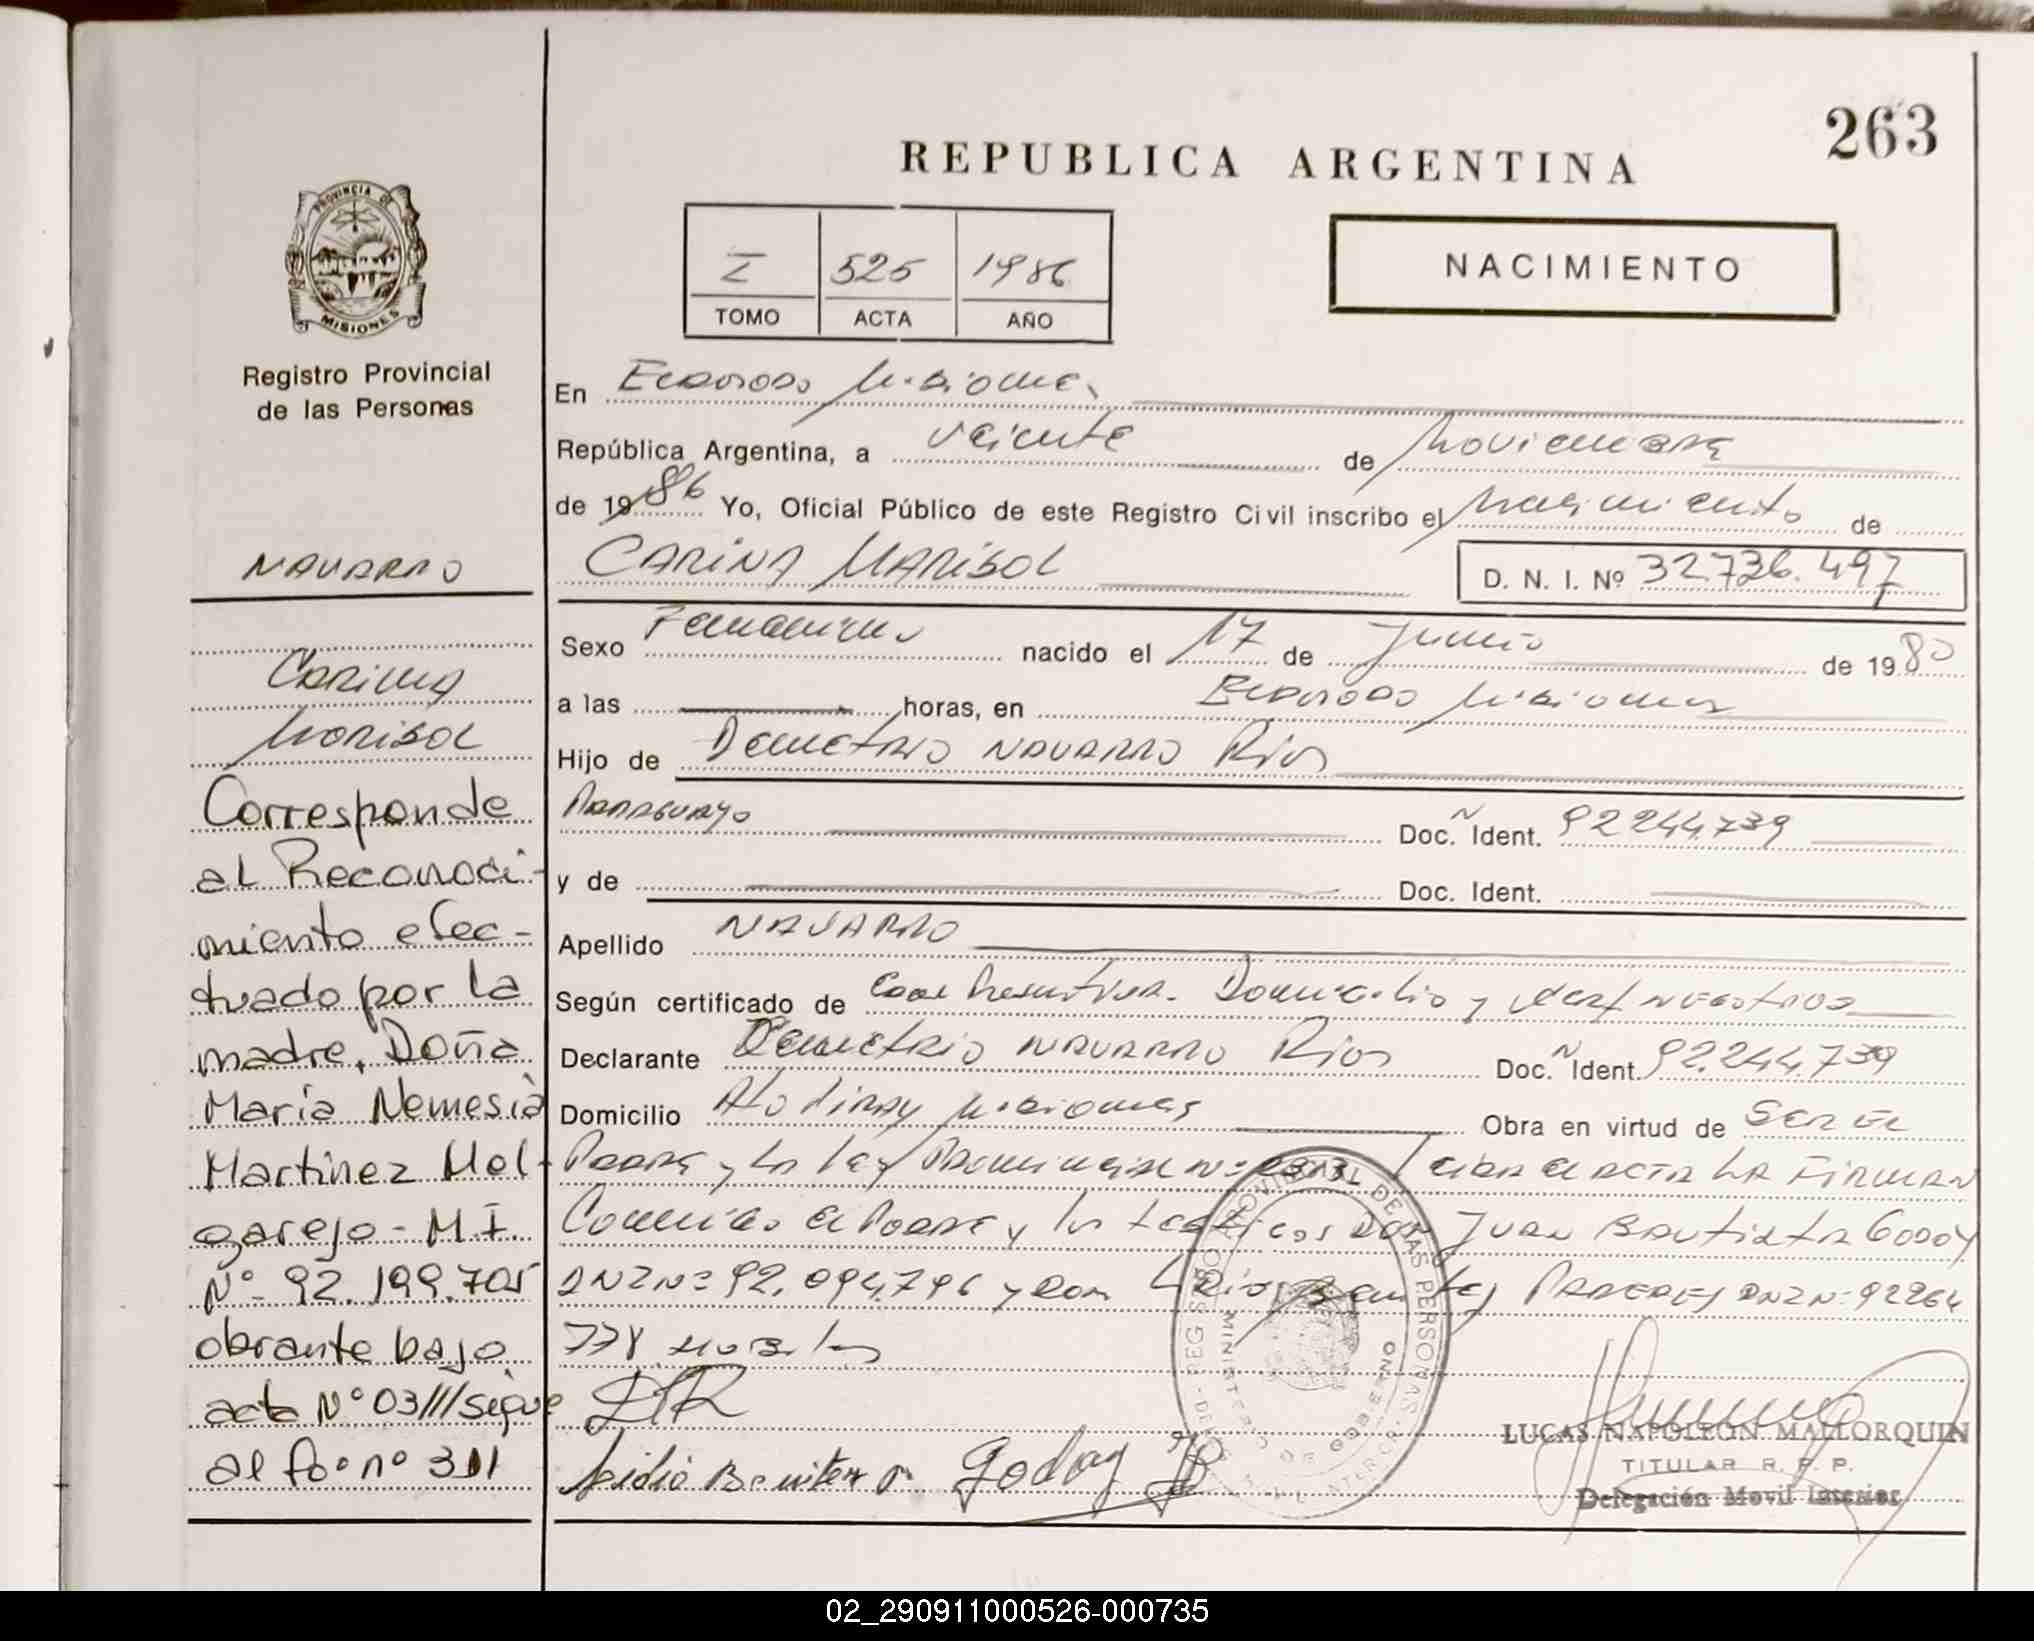 263
REPUBLICA ARGENTINA
I 525 1986
TOMO ACTA AÑO
NACIMIENTO
PROVINCIA DE
MISIONES
Registro Provincial
de las Personas
En Eldorado Misiones
República Argentina, a veinte de Noviembre
de 1986 Yo, Oficial Público de este Registro Civil inscribo el Nacimiento de
CARINA MARISOL
D. N. I. Nº 32.736.497
Sexo Femenino nacido el 17 de Junio de 1980
a las horas, en Eldorado Misiones
Hijo de Demetrio NAVARRO Rios
Paraguayo Doc. Ident. 92244.739
y de Doc. Ident.
Apellido NAVARRO
Según certificado de Domicilio y
Declarante Demetrio NAVARRO Rios Doc. Ident. 92.244.739
Domicilio Misiones Obra en virtud de Ser el
Padre y la Ley Provincial Nº Leida el acta la Firman
Conmigo el Padre y los testigos Don Juan Bautista Godoy
DNI Nº 92.094.796 y Don DNI Nº 92264
778
Godoy
LUCAS NAPOLEON MALLORQUIN
TITULAR R. P. P.
Delegación Movil Interior
REGISTRO PROVINCIAL DE LAS PERSONAS
MINISTERIO DE GOBIERNO
NAVARRO
Carina
Marisol
Corresponde
al Reconoci-
miento efec-
tuado por la
madre, Doña
María Nemesia
Martinez Mel-
garejo - M.I.
Nº 92.199.705
obrante bajo
acta Nº 03///sigue
al fo nº 311
02_290911000526-000735